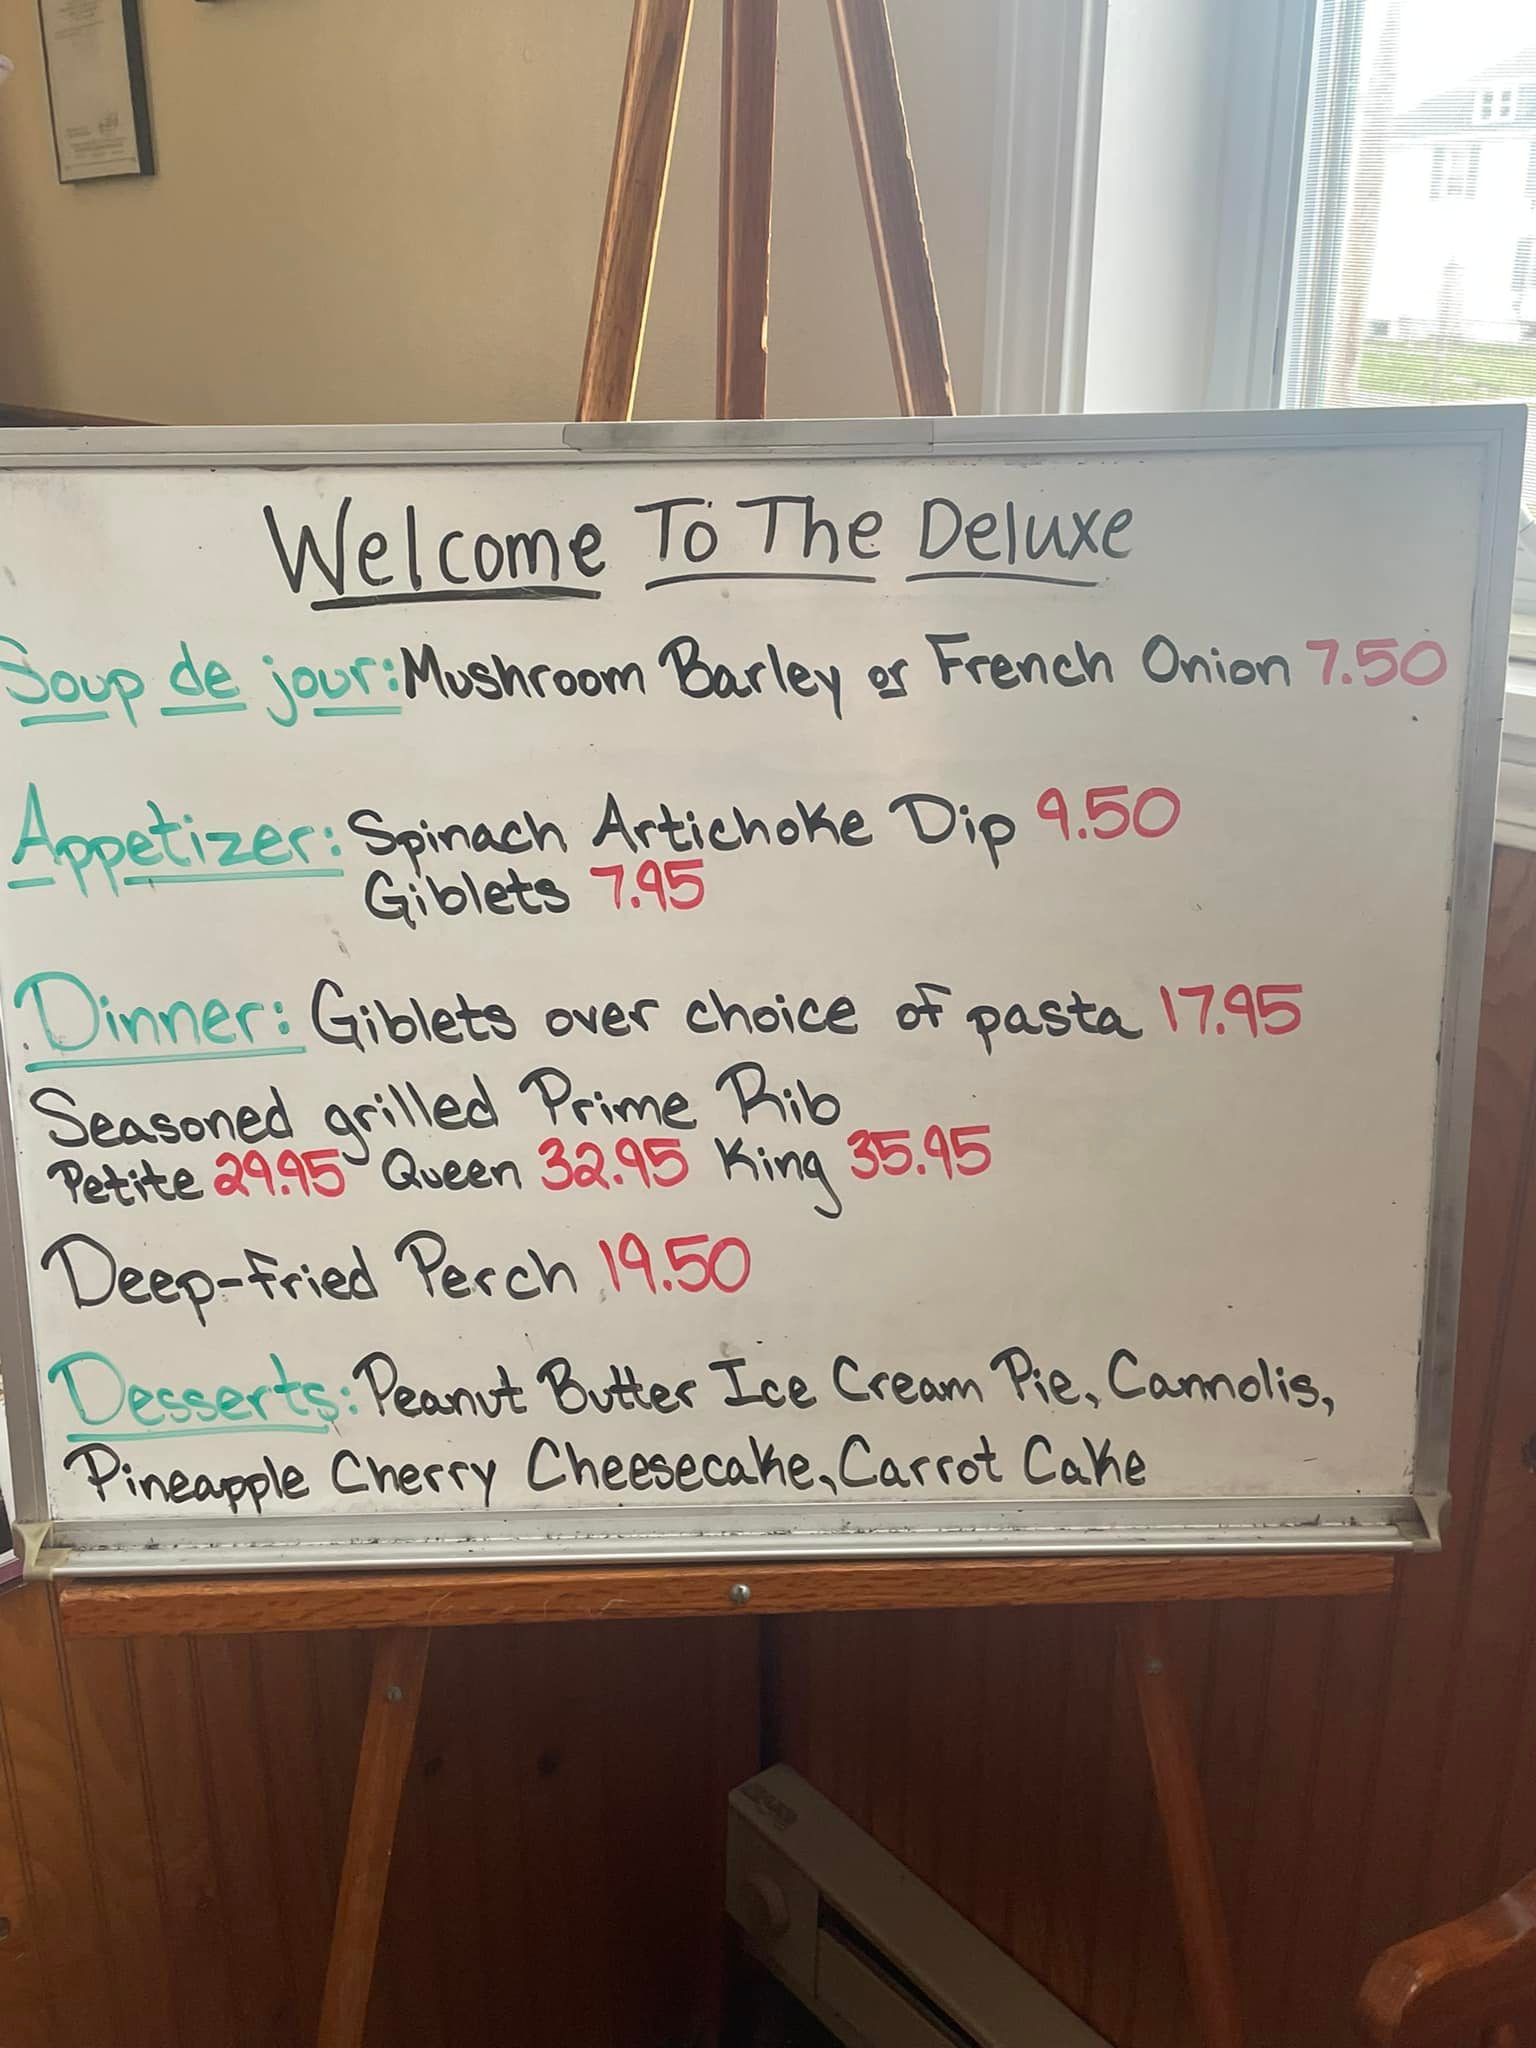 Welcome To The Deluxe
Soup de jour: Mushroom Barley or French Onion 7.50
Appetizer: Spinach Artichoke Dip 9.50
Giblets 7.95
Dinner: Giblets over choice of pasta 17.95
Seasoned grilled Prime Rib
Petite 29.95 Queen 32.95 King 35.95
Deep-fried Perch 19.50
Desserts: Peanut Butter Ice Cream Pie, Cannolis,
Pineapple Cherry Cheesecake, Carrot Cake